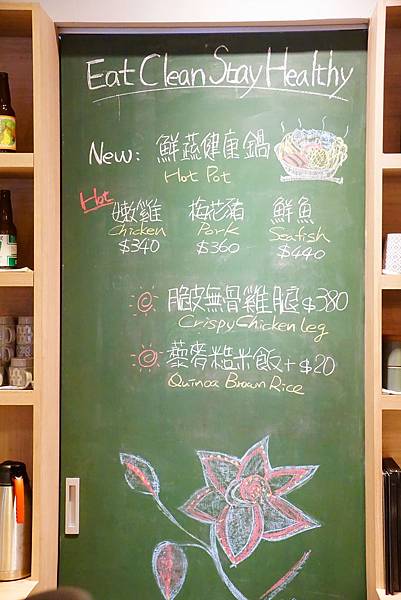 Eat Clean Stay Healthy
New: 鮮蔬健康鍋
Hot Pot
Hot
嫩雞 梅花豬 鮮魚
Chicken Pork Seafish
$340 $360 $440
脆皮無骨雞腿 $380
Crispy Chicken leg
藜麥糙米飯 + $20
Quinoa Brown Rice